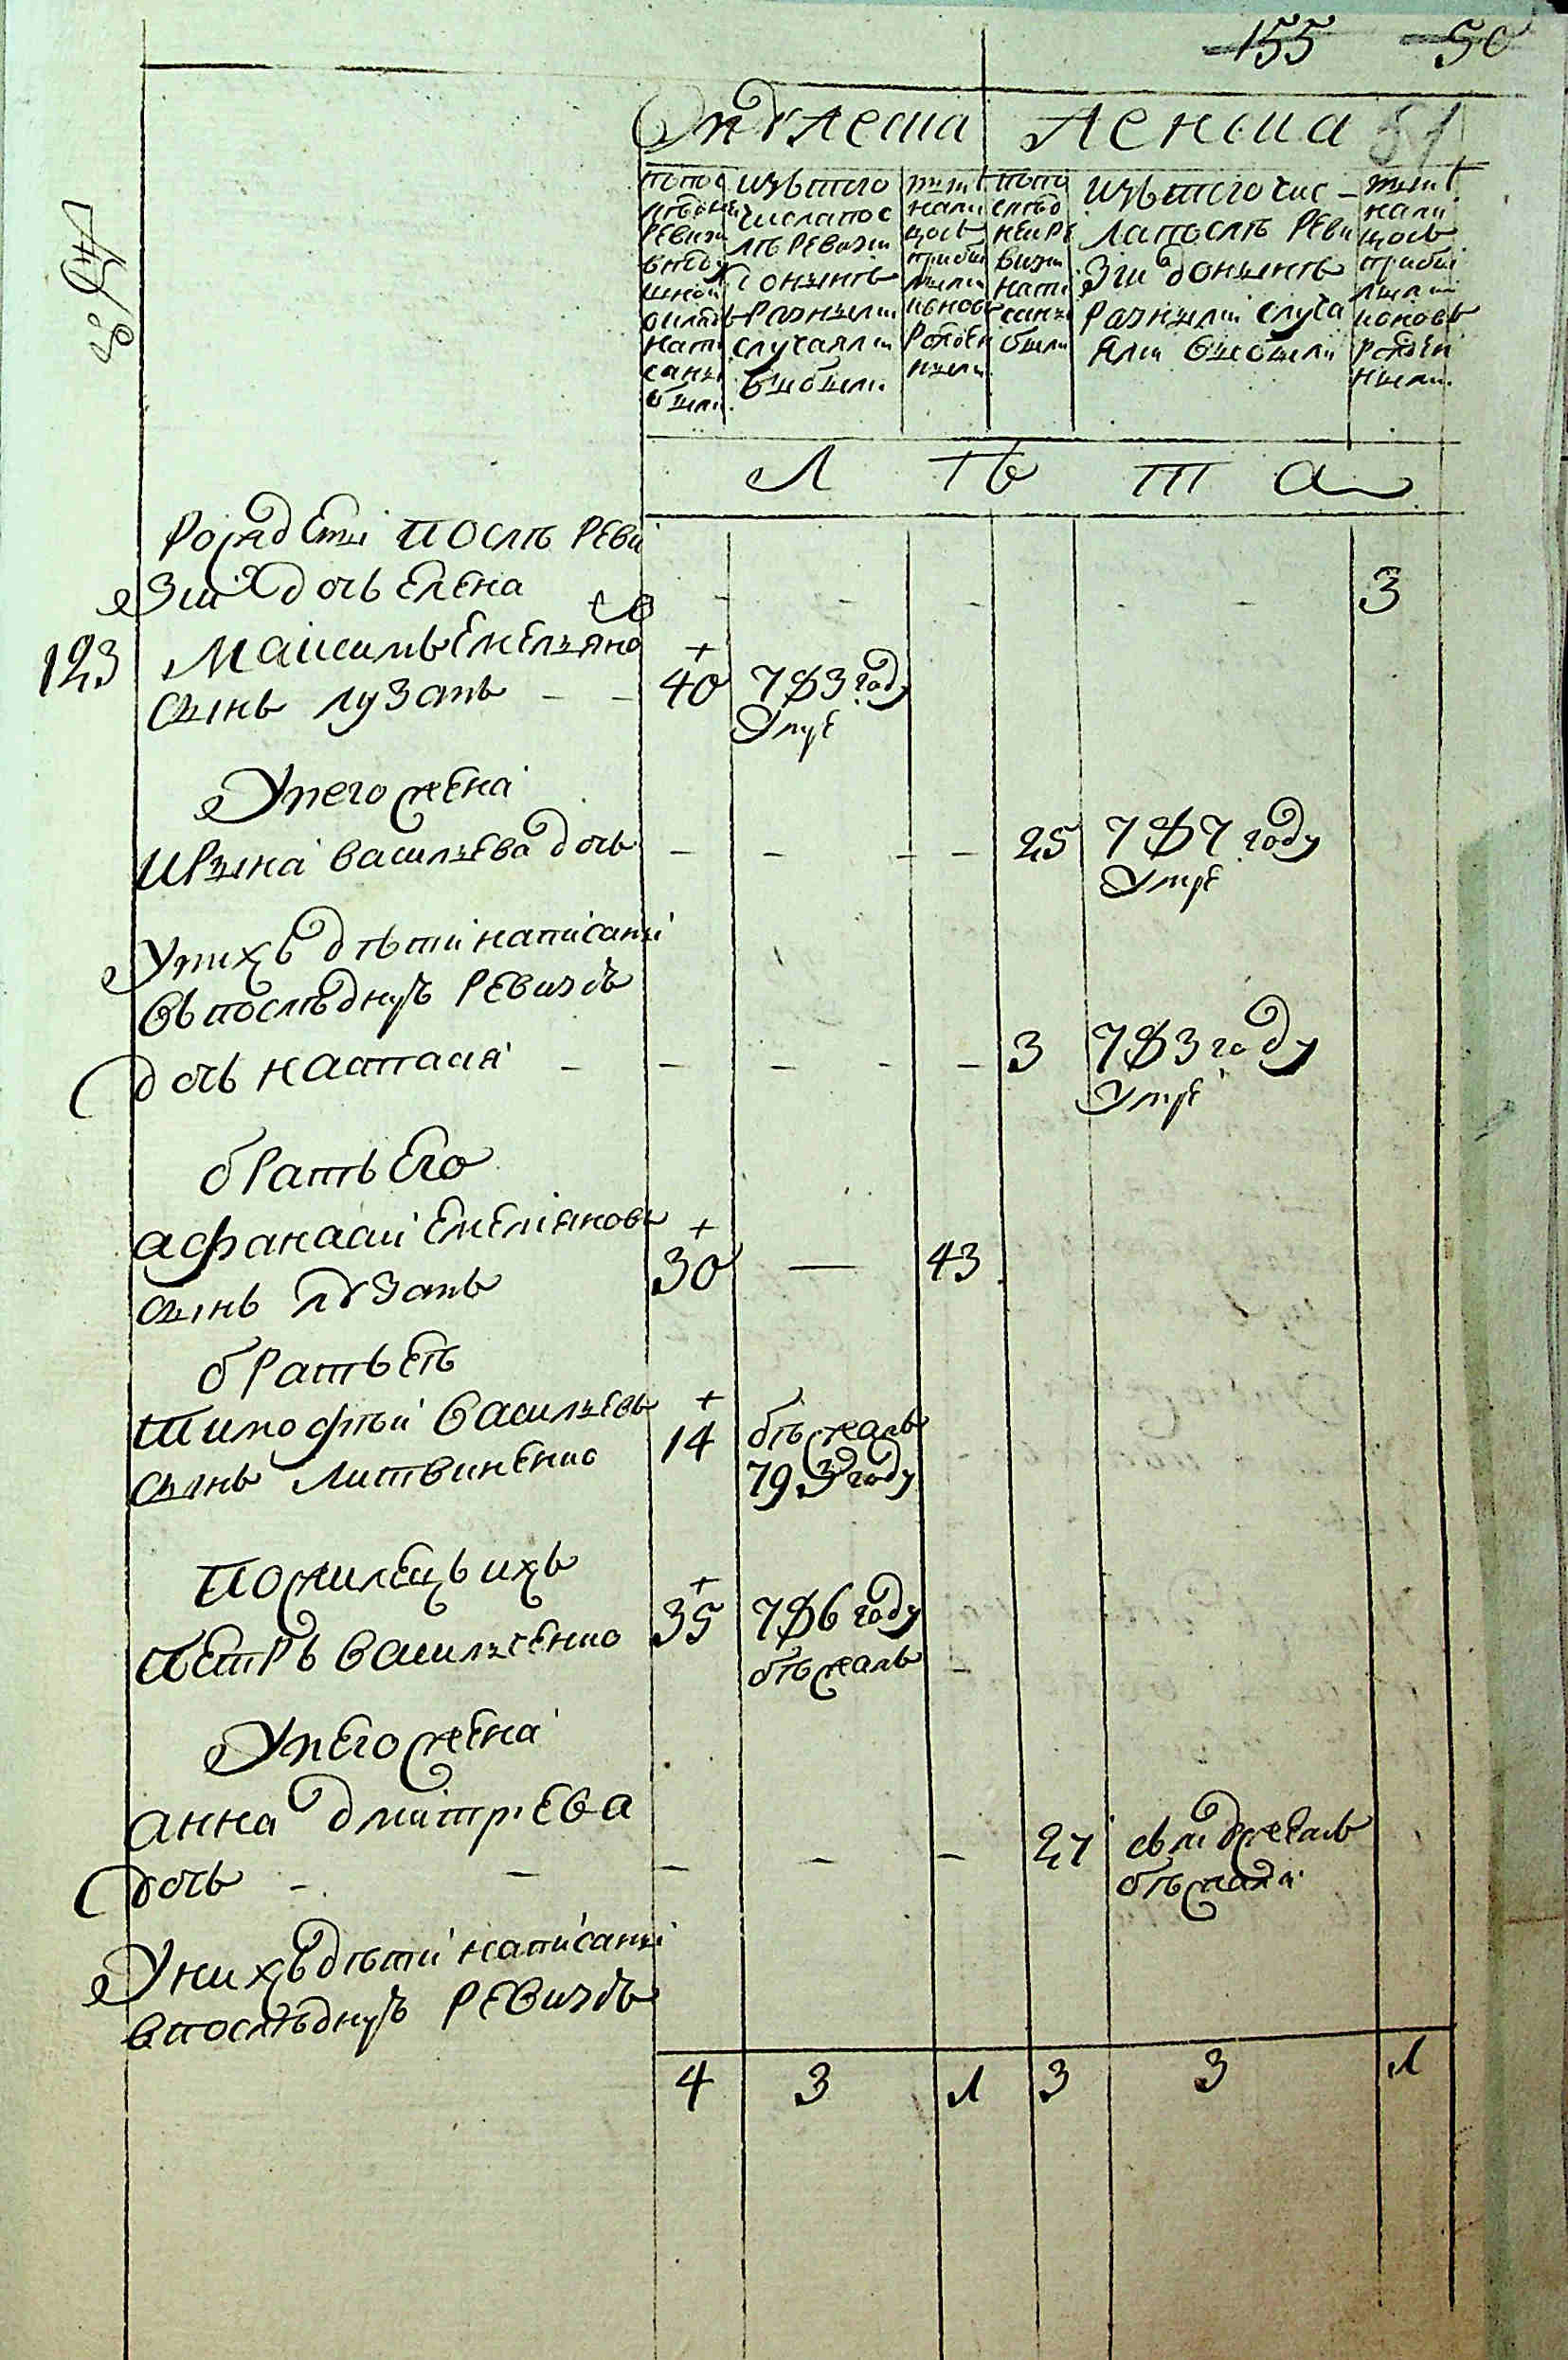 155 50
51
Мужеска Женска
попос
ледней
ревизи
в неду
шной
оклад
напи
саны
были
изъ того
числа пос
ле ревизии
до ныне
разными
случаями
выбыли
ныне
нали
цось
прибы
лыми
и новъ
рожден
ными
попо
следо
ней ре
визи
напи
саны
были
изъ того чис
ла после реви
зии до ныне
разными случа
ями выбыли
ныне
нали
цось
прибы
лыми
и новъ
рожден
ными
Л ѣ т а
рождены после реви
зии дочь Елена 3
123 Максимъ Емельяно
въ
сынъ лузанъ 40 783 году
умре
У него жена
Ирына васильева дочь 25 787 году
умре
У нихъ дѣти написаны
въ последнуъ ревизоъ
дочь настасия 3 783 году
умре
братъ Его
афанасий Емелянов
сынъ лузанъ 30 43
братъ Еѣ
тимофѣй васильевъ
сынъ Литвиненко 14 бѣжалъ
793 году
Пожилецъ ихъ
Петръ васильченко 35 786 году
бѣжалъ
У него жена
анна дмитриева
дочь 27 съ мужемъ
бѣжала
У нихъ дѣти написаны
в последнуъ ревизоъ
4 3 1 3 3 1